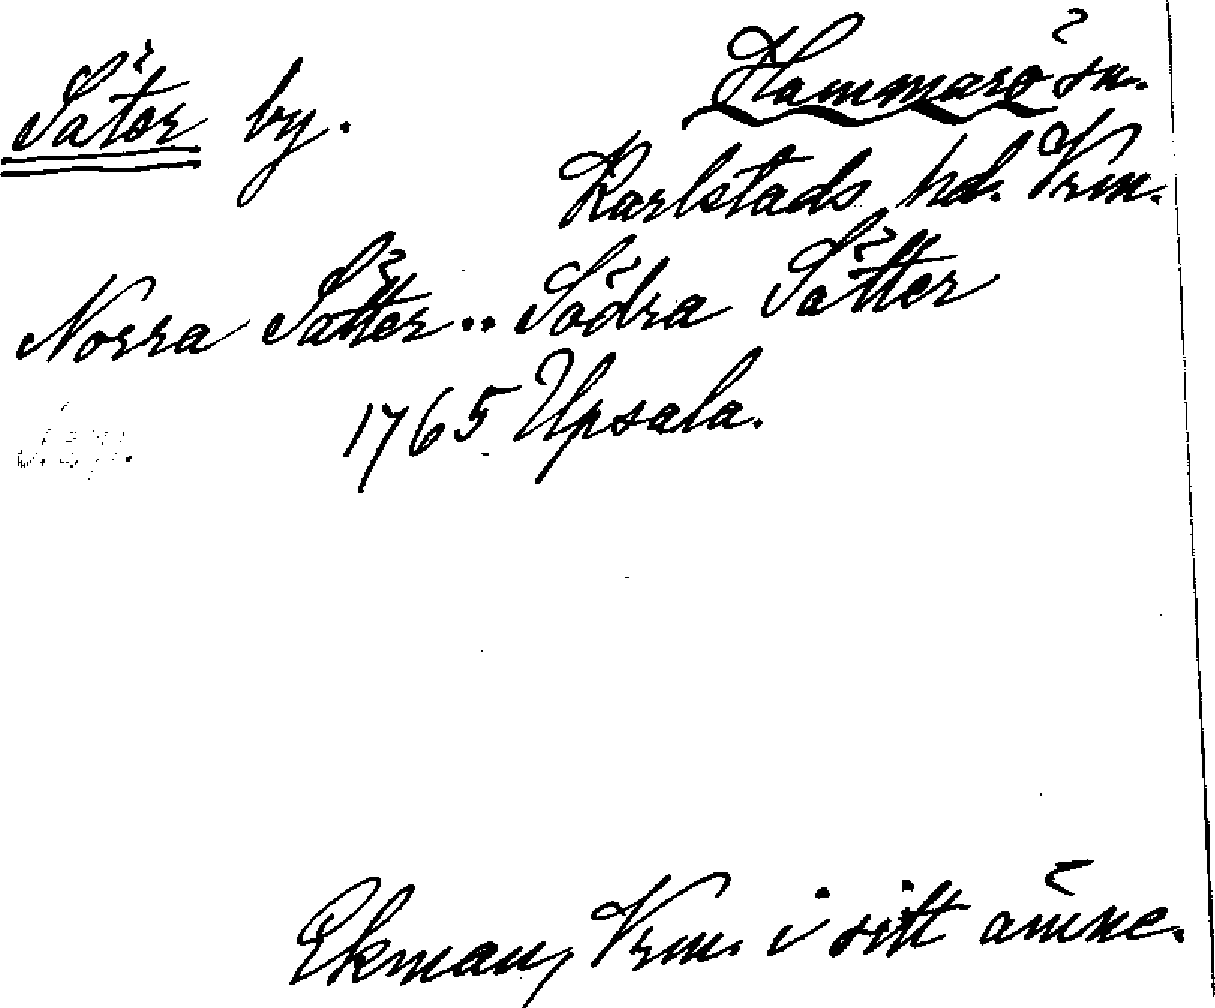 Säter by. Hammarö sn.
Karlstads hd. Vrm.
Norra Sätter.. Södra Sätter
1765 Upsala.
Ekman, Vrm. i sitt ämne.